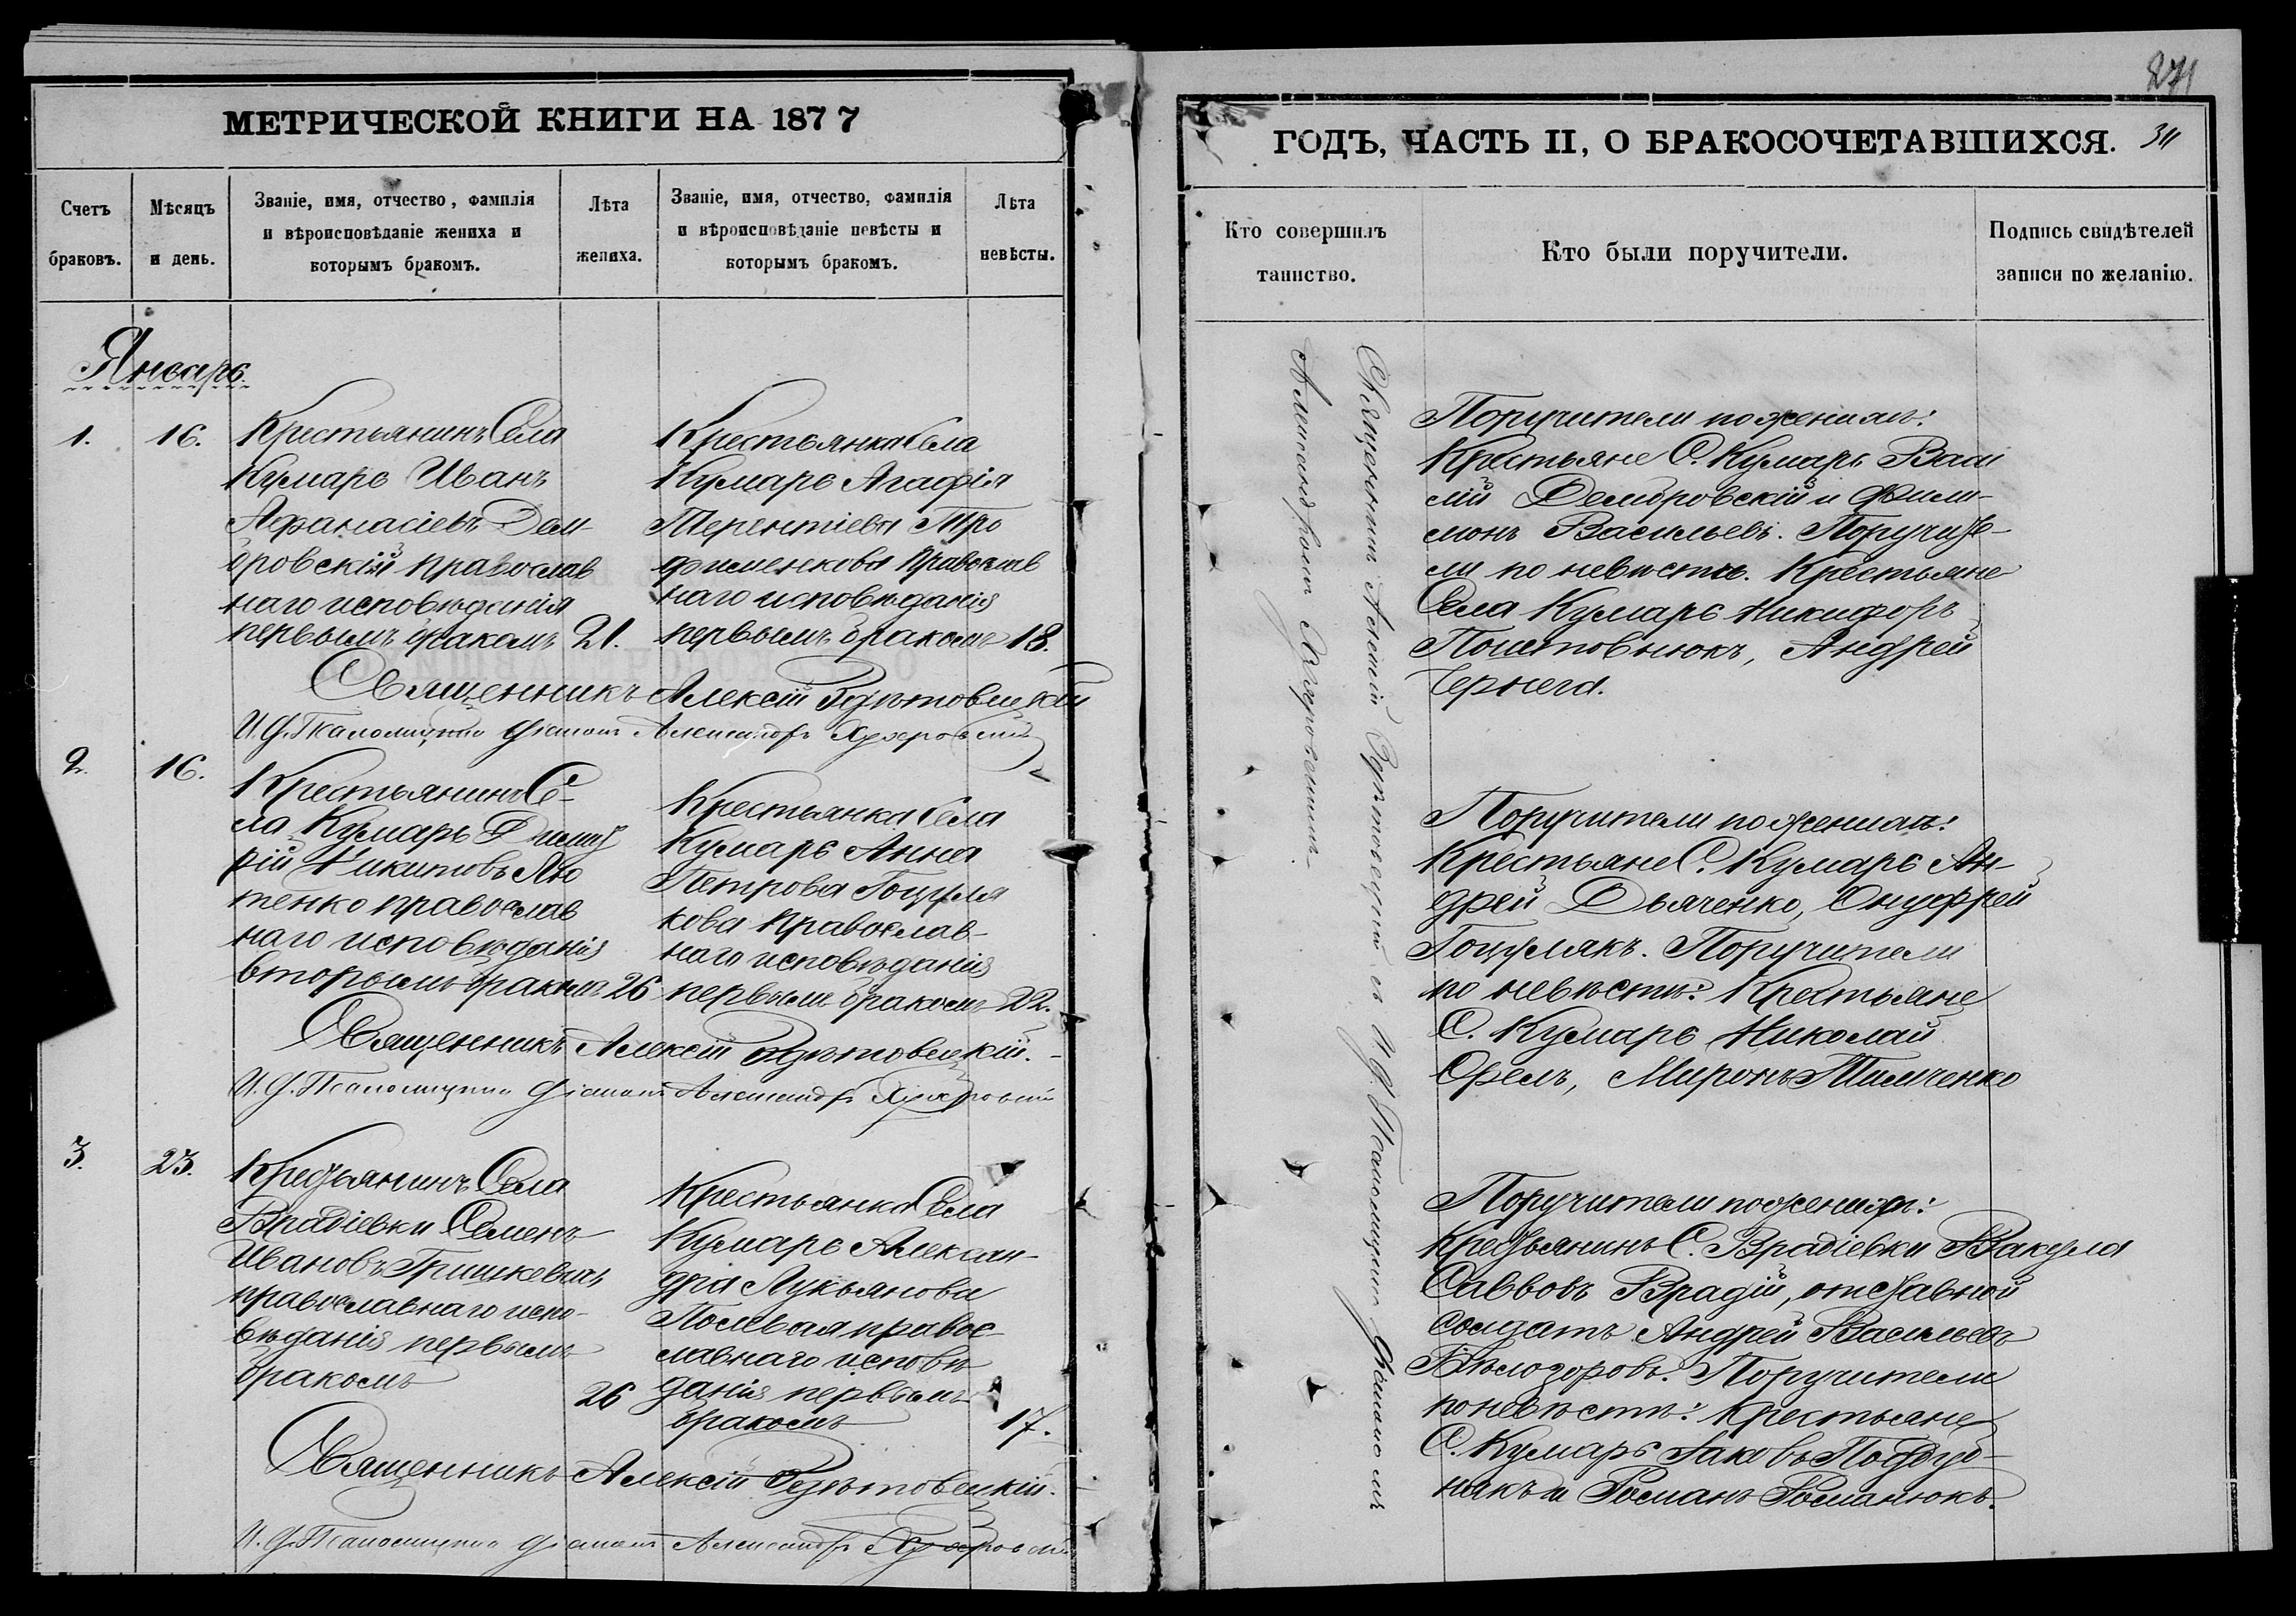 МЕТРИЧЕСКОЙ КНИГИ НА 1877
Счетъ браковъ.
Мѣсяцъ и день.
Званіе, имя, отчество, фамилія
и вѣроисповѣданіе жениха и
которымъ бракомъ.
Лѣта жениха.
Званіе, имя, отчество, фамилія
и вѣроисповѣданіе невѣсты и
которымъ бракомъ.
Лѣта невѣсты.
Январь.
1.
16.
Крестьянинъ Села
Кумаръ Иванъ
Афанасіевъ Дом-
бровскій православ
наго исповѣданія
первымъ бракомъ 21.
Крестьянка Села
Кумаръ Агафія
Терентіева Тро
фименкова православ
наго исповѣданія
первымъ бракомъ 18.
Священникъ Алексій
И. д. Псаломщика діаконъ Александръ
2.
16.
Крестьянинъ Се-
ла Кумаръ Димит
рій Никитовъ Лю
тенко православ
наго исповѣданія
вторымъ бракомъ 26
Крестьянка Села
Кумаръ Анна
Петрова Гоцуля
кова православ-
наго исповѣданія
первымъ бракомъ 22.
Священникъ Алексій
И. д. Псаломщика діаконъ Александръ
3.
23.
Крестьянинъ Села
Врадіевки Семенъ
Ивановъ Гришкевичъ
православнаго испо-
вѣданія первымъ
бракомъ
26
Крестьянка Села
Кумаръ Алексан-
дра Лукьянова
Полевая правос-
лавнаго исповѣ
данія первымъ
бракомъ
17.
Священникъ Алексій
И. д. Псаломщика діаконъ Александръ
271
ГОДЪ, ЧАСТЬ II, О БРАКОСОЧЕТАВШИХСЯ.
Кто совершилъ
таинство.
Кто были поручители.
Подпись свидѣтелей
записи по желанію.
Священникъ Алексій съ И. д. Псаломщика діакономъ
Александромъ
Поручители по женихѣ:
Крестьяне С. Кумаръ Васи
лій Домбровскій и Фили-
монъ Васильевъ. Поручите-
ли по невѣстѣ. Крестьяне
Села Кумаръ Никифоръ
Андрей
Чернега.
Поручители по женихѣ:
Крестьяне С. Кумаръ Ан-
дрей Дьяченко, Онуфрей
Гоцулякъ. Поручители
по невѣстѣ: Крестьяне
С. Кумаръ Николай
Орелъ, Миронъ Тимченко
Поручители по женихѣ:
Крестьянинъ С. Врадіевки Вакула
Савовъ Врадій, отставной
солдатъ Андрей Васильевъ
Бѣлозоровъ. Поручители
по невѣстѣ: Крестьяне
С. Кумаръ Іаковъ Поддуб-
някъ и Романъ Романюкъ.